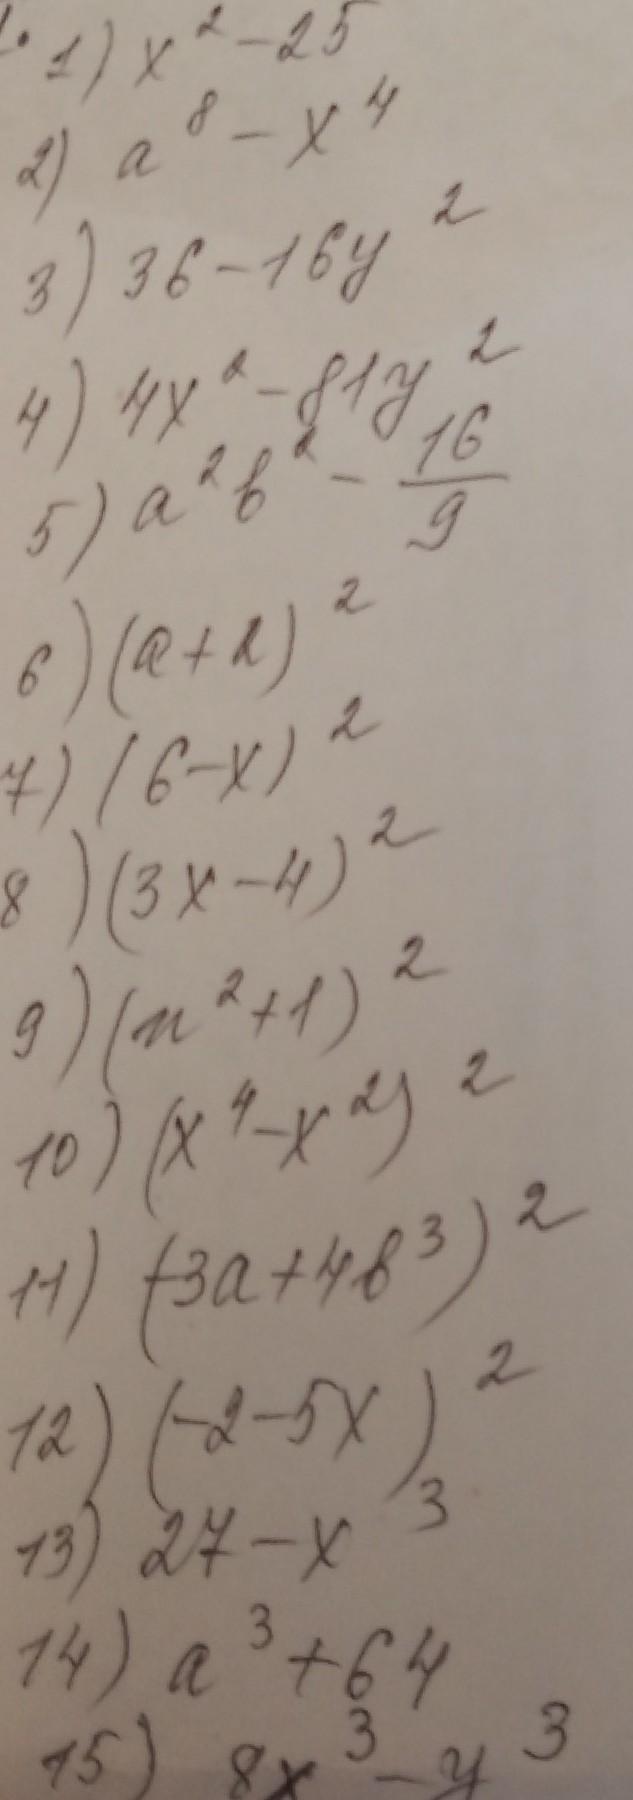 1) x² - 25
2) a⁸ - x⁴
3) 36 - 16y²
4) 4x² - 81y²
5) a²b² - 16/9
6) (a + 2)²
7) (6 - x)²
8) (3x - 4)²
9) (n² + 1)²
10) (x⁴ - x²)²
11) (-3a + 4b³)²
12) (-2 - 5x)²
13) 27 - x³
14) a³ + 64
15) 8x³ - y³